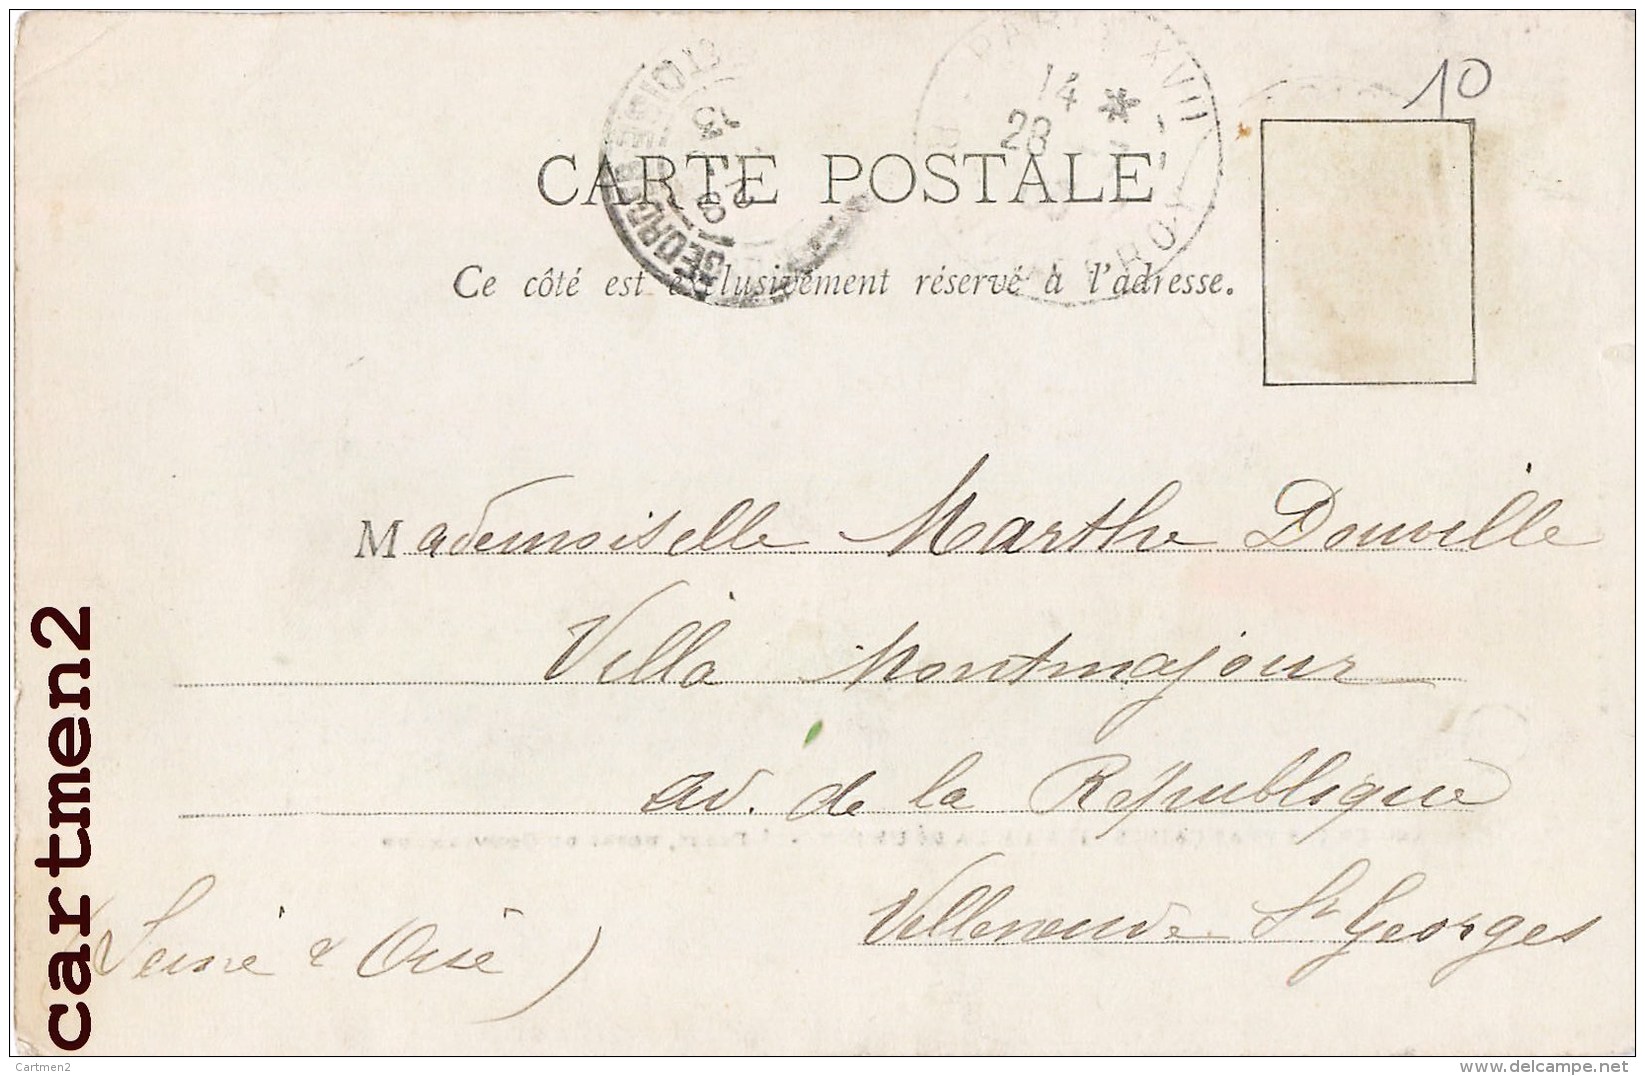 10
PARIS XVII
14 *
28
SEINE-ET-OISE
GEORGES
CARTE POSTALE
Ce côté est exclusivement réservé à l'adresse.
Mademoiselle Marthe Douville
Villa Montmajour
av. de la République
Villeneuve St Georges
(Seine & Oise)
cartmen2
Cartmen2
delcampe.net